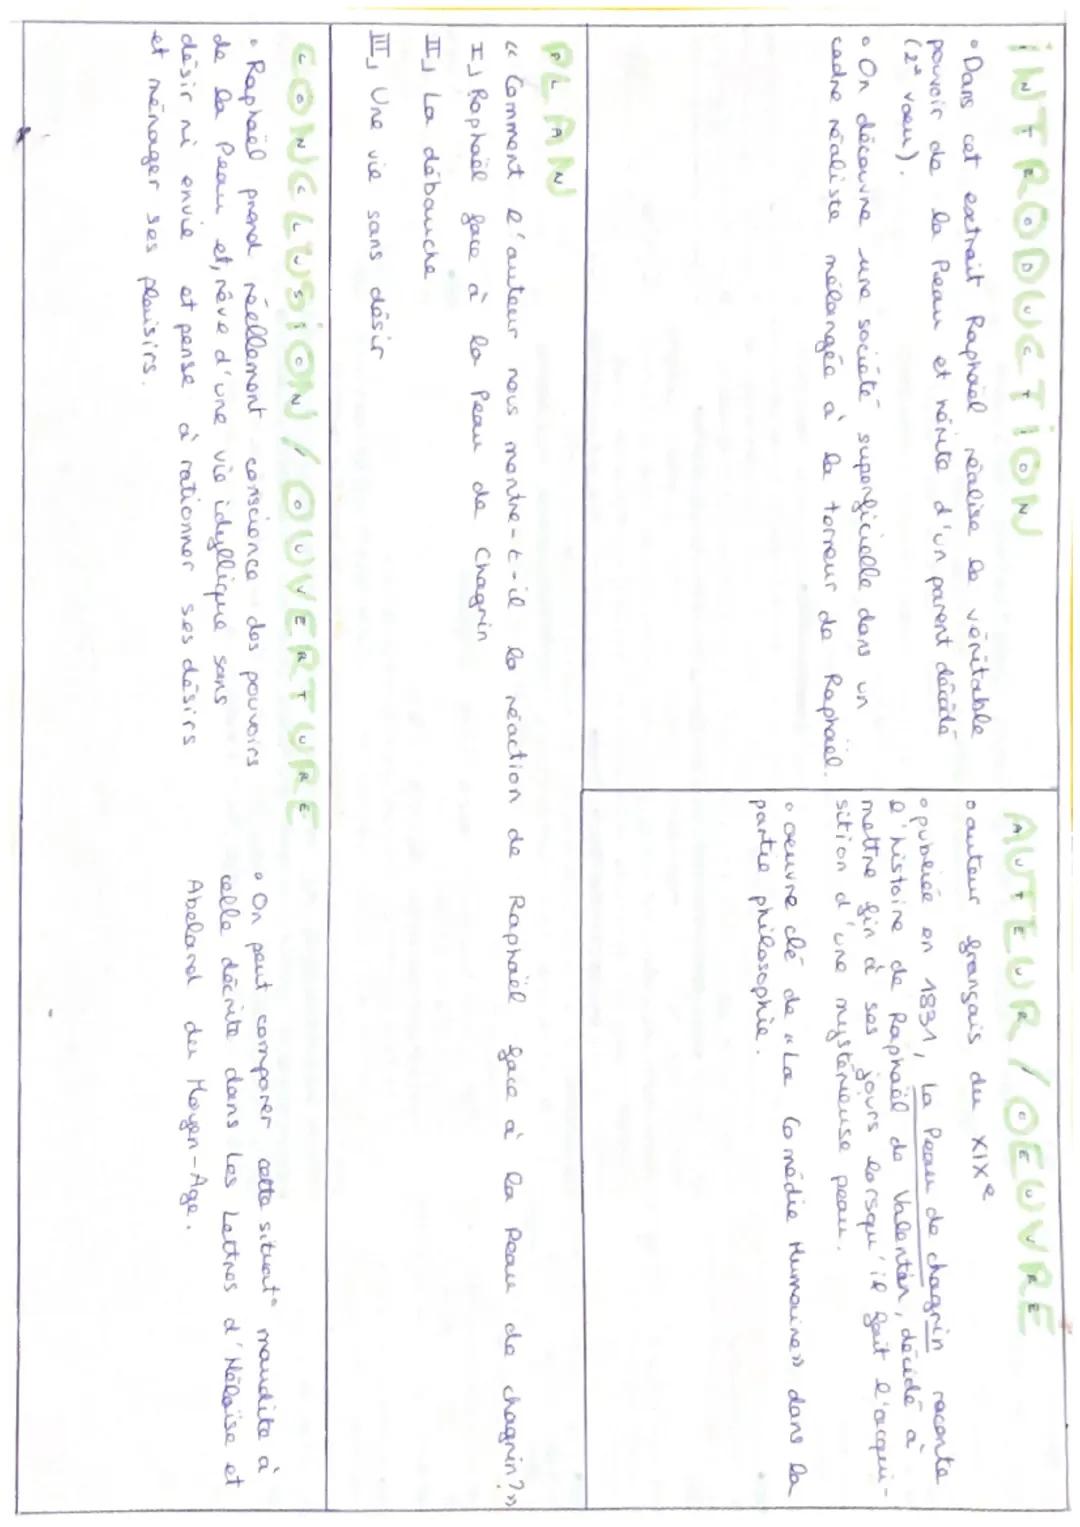 INTRODUCTION
• Dans cet extrait Raphaël réalise le véritable
pouvoir de la Peau et hérite d'un parent décédé
(2e voeu).
• On découvre une société superficielle dans un
cadre réaliste mélangée à la terreur de Raphaël.
AUTEUR / OEUVRE
• auteur français du XIXe
• publiée en 1831, La Peau de chagrin raconte
l'histoire de Raphaël de Valentin, décidé à
mettre fin à ses jours lorsqu'il fait l'acqui-
sition d'une mystérieuse peau.
• oeuvre clé de « La Comédie Humaine » dans la
partie philosophie.
PLAN
« Comment l'auteur nous montre-t-il la réaction de Raphaël face à la Peau de chagrin? »
I, Raphaël face à la Peau de Chagrin
II, La débauche
III, Une vie sans désir
CONCLUSION / OUVERTURE
• Raphaël prend réellement conscience des pouvoirs
de la Peau et, rêve d'une vie idyllique sans
désir ni envie et pense à rationner ses désirs
et ménager ses plaisirs.
• On peut comparer cette situat° maudite à
celle décrite dans Les Lettres d'Héloïse et
Abelard du Moyen-Age.